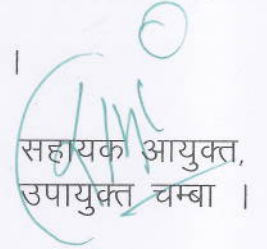 ।
सहायक आयुक्त,
उपायुक्त चम्बा ।